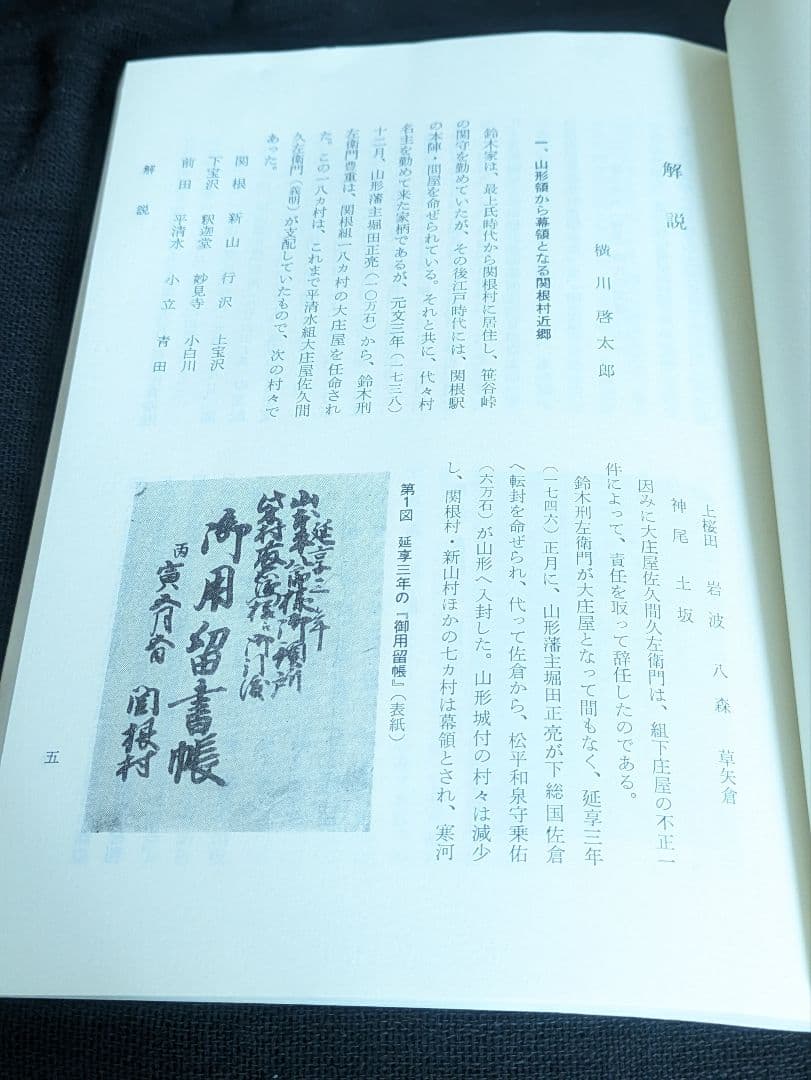 解説
横川啓太郎
一、山形領から幕領となる関根村近郷
鈴木家は、最上氏時代から関根村に居住し、笹谷峠
の関守を勤めていたが、その後江戸時代には、関根駅
の本陣・問屋を命ぜられている。それと共に、代々村
名主を勤めて来た家柄であるが、元文三年（一七三八）
十二月、山形藩主堀田正亮（一〇万石）から、鈴木刑
左衛門豊重は、関根組一八カ村の大庄屋を任命され
た。この一八カ村は、これまで平清水組大庄屋佐久間
久左衛門（義明）が支配していたもので、次の村々で
あった。
関根　新山　行沢　上宝沢
下宝沢　釈迦堂　妙見寺　小白川
前田　平清水　小立　青田
上桜田　岩波　八森　草矢倉
神尾　土坂
因みに大庄屋佐久間久左衛門は、組下庄屋の不正一
件によって、責任を取って辞任したのである。
鈴木刑左衛門が大庄屋となって間もなく、延享三年
（一七四六）正月に、山形藩主堀田正亮が下総国佐倉
へ転封を命ぜられ、代って佐倉から、松平和泉守乗佑
（六万石）が山形へ入封した。山形城付の村々は減少
し、関根村・新山村ほかの七カ村は幕領とされ、寒河
第1図　延享三年の『御用留帳』（表紙）
延享三年
御用留書帳
丙寅
関根村
解説
五